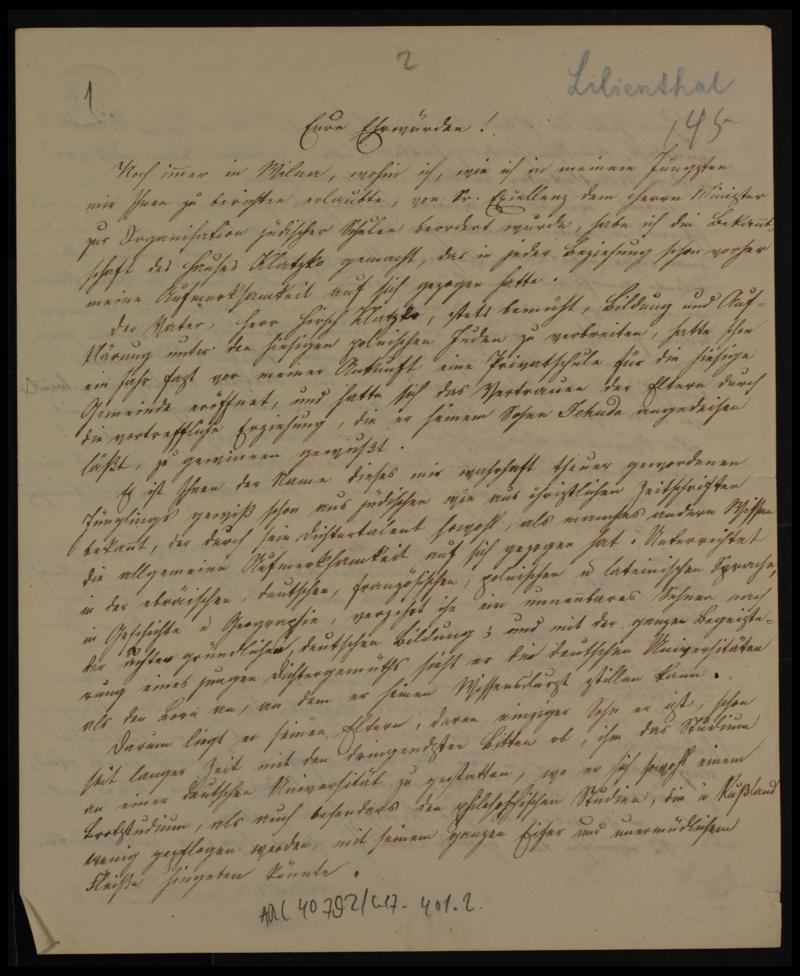 2
Lilienthal
1
145
Euer Ehrwürden!
Noch immer in Wilna, wohin ich, wie ich in meinem Jüngsten
mir Ihnen zu berichten erlaubte, von Sr. Excellenz dem Herrn Minister
zur Organisation jüdischer Schulen beordert wurde, habe ich die Bekannt-
schaft des Hauses Klatzko gemacht, das in jeder Beziehung schon vorher
meine Aufmerksamkeit auf sich gezogen hatte.
Der Vater, Herr Hirsch Klatzko, stets bemüht, Bildung und Auf-
klärung unter den hiesigen polnischen Juden zu verbreiten, hatte schon
ein Jahr fast vor meiner Ankunft eine Privatschule für die hiesige
Gemeinde eröffnet, und hatte sich das Vertrauen der Eltern durch
die vortreffliche Erziehung, die er seinem Sohne Jehuda angedeihen
läßt, zu gewinnen gewußt.
Es ist Ihnen der Name dieses mir wahrhaft theuer gewordenen
Jünglings gewiß schon aus jüdischen wie aus christlichen Zeitschriften
bekannt, der durch sein Dichtertalent sowohl, als manches andere Wissen
die allgemeine Aufmerksamkeit auf sich gezogen hat. Unterrichtet
in der ebräischen, deutschen, französischen, polnischen u lateinischen Sprache,
in Geschichte u Geographie, verzehrt ihn ein unnennbares Sehnen nach
der ächten gründlichen, deutschen Bildung; und mit der ganzen Begeiste-
rung eines jungen Dichtergemüths sieht er die deutschen Universitäten
als den Born an, an dem er seinen Wissensdurst stillen kann.
Darum liegt er seinen Eltern, deren einziger Sohn er ist, schon
seit langer Zeit mit den dringendsten Bitten ob, ihm das Studium
an einer deutschen Universität zu gestatten, wo er sich sowohl einem
Brodstudium, als auch besonders den philosophischen Studien, die in Rußland
wenig gepflogen werden, mit seinem ganzen Eifer und unermüdlichem
Fleiße hingeben könnte.
ARC 4° 792/C17-401.2.